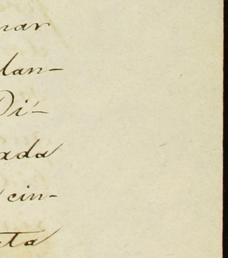 nar
dan-
Di-
ada
cin-
ta